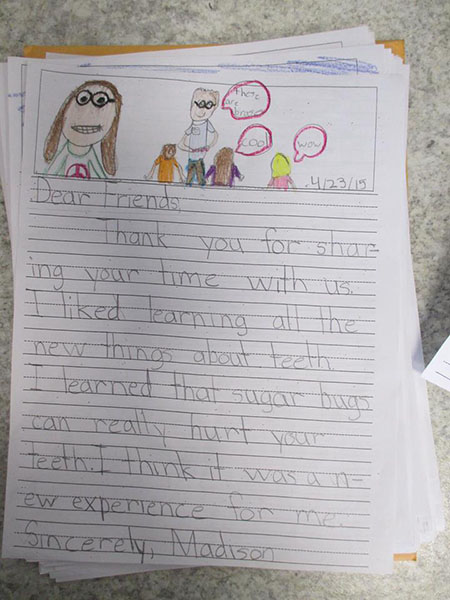 these
are
COOL
WOW
4/23/15
Dear Friends,
Thank you for shar-
ing your time with us.
I liked learning all the
new things about teeth.
I learned that sugar bugs
can really hurt your
teeth. I think it was a n-
ew experience for me.
Sincerely, Madison